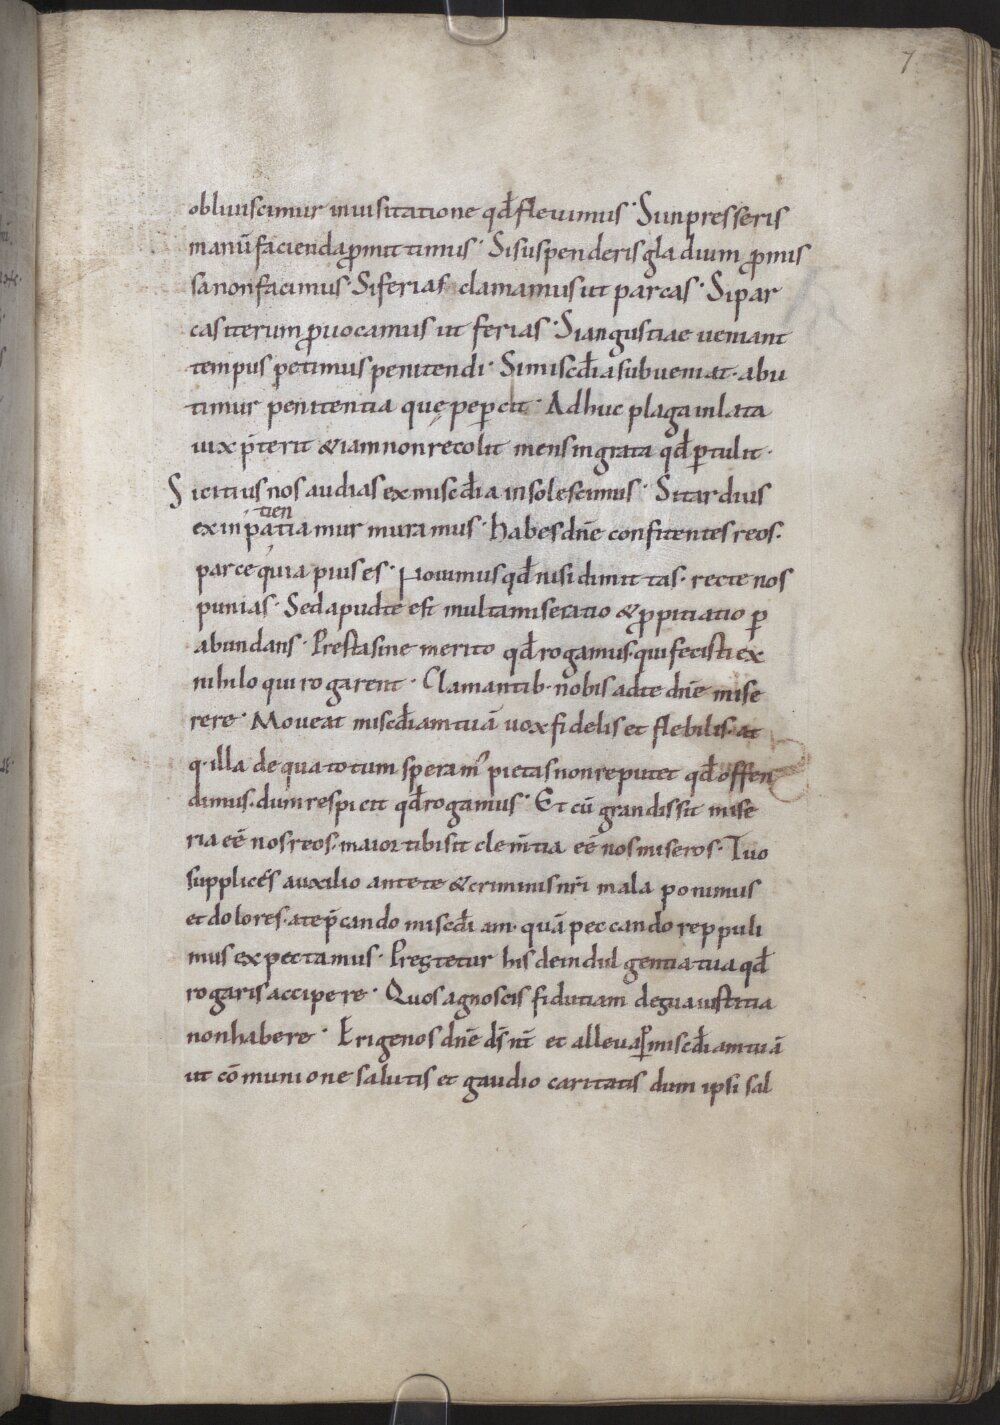 7
obliuiscimur inuisitatione qđ fleuimus · Si inpresseris
manū facienda ꝓmittimus · Si suspenderis gladium ꝓmis
sa non facimus · Si ferias clamamus ut parcas · Si par
cas iterum ꝓuocamus ut ferias · Si angustiae ueniant
tempus petimus penitendi · Si miscđia subueniat · abu
timur penitentia quę peꝑcit · Adhuc plaga inlata
uix p̄terit & iam non recolit mens ingrata qđ ꝑtulit ·
Si citius nos audias ex miscđia insolescimus · Si tardius
tien
ex inpatia murmuramus · habes dn̄e confitentes reos ·
parce quia pius es · Nouimus qđ nisi dimittas · recte nos
punias · Sed apud te est multa miseratio & ꝓpitiatio ꝑ
abundans · Presta sine merito qđ rogamus · qui fecisti ex
nihilo qui rogarent · Clamantib · nobis ad te dn̄e mise
rere · Moueat miscđiam tuā uox fidelis et flebilis · at
q · illa de qua totum speram᾿ pietas non reputet qđ offen
dimus · dum respicit qđ rogamus · Et cū grandis sit mise
ria eē nos reos · maior tibi sit clem̄tia eē nos miseros · Tuo
supplices auxilio ante te & criminis nr̄i mala ponimus
et dolores · a te p̄cando miscđiam · quā peccando reppuli
mus expectamus · Pręstetur his de indulgentia tua qđ
rogaris accipere · Quos agnoscis fidutiam de sua iustitia
non habere · Erige nos dn̄e ds̄ nr̄ et alleua ꝑ miscđiam tuā
ut cōmunione salutis et gaudio caritatis dum ipsi sal